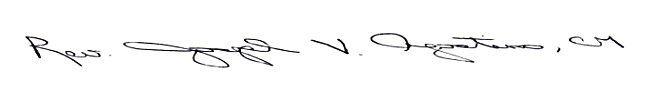 Rev. Joseph V. Agostino, CM